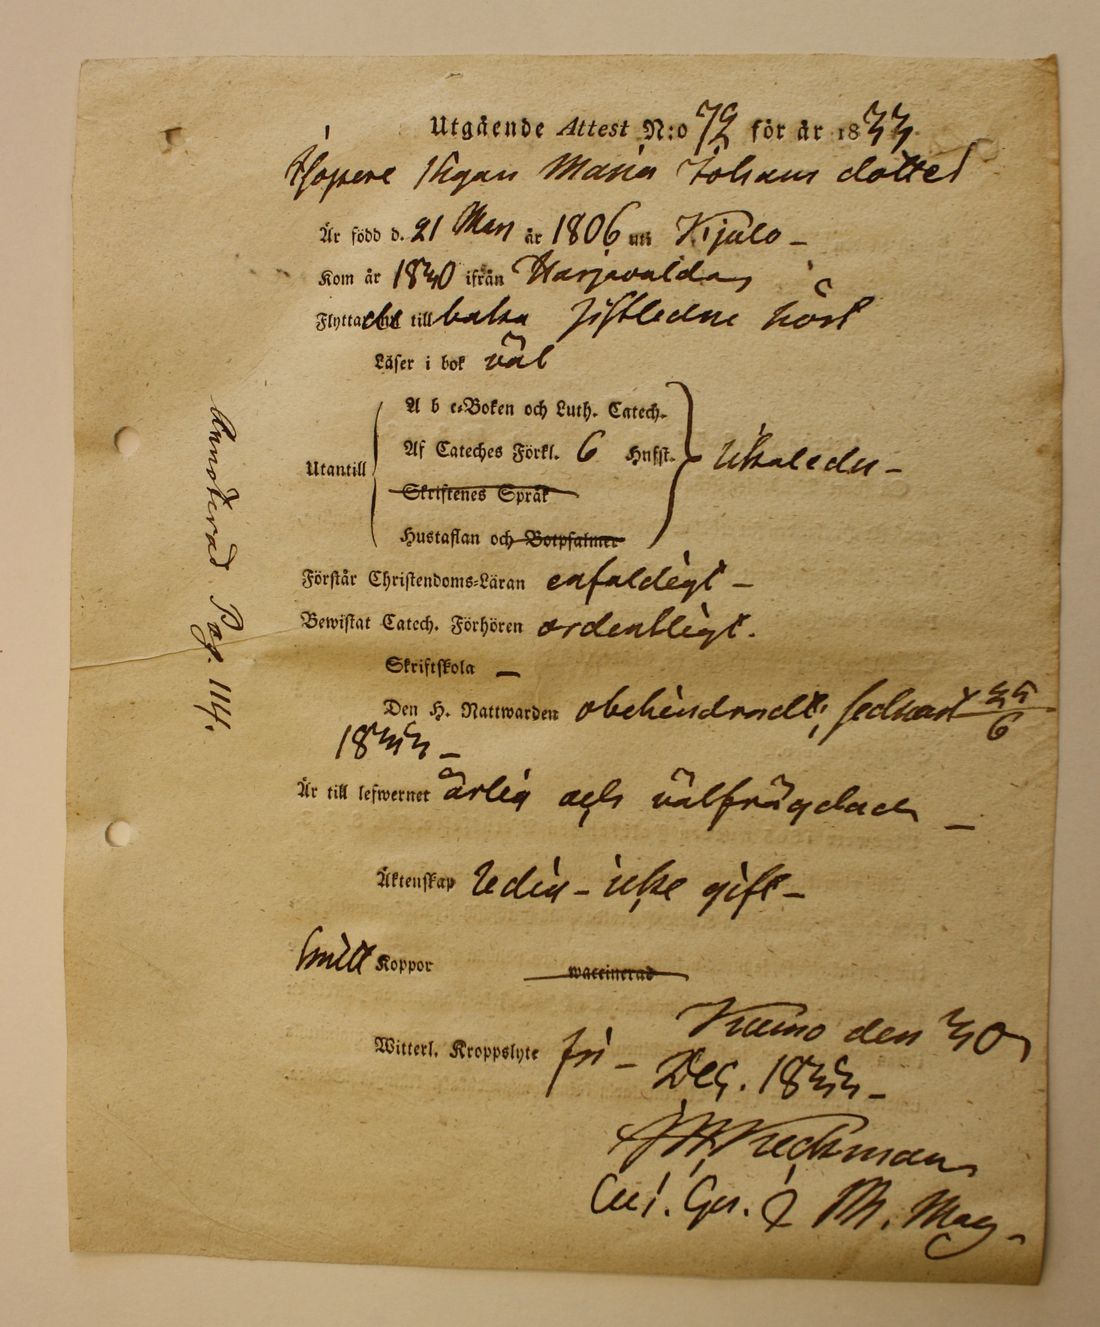 Utgående Attest N:o 72 för år 1833
Pigan Maria Johans dotter
Är född d. 21 Mars år 1806 uti Kjulo –
Kom år 1830 ifrån Harjavalda
Flyttade till baka sistledne höst
Läser i bok väl
A b c-Boken och Luth. Catech.
Utantill Af Cateches Förkl. 6 Hufst.
Skriftenes Språk
Hustaflan och Botpsalmer
Förstår Christendoms-Läran enfaldigt –
Bewistat Catech. Förhören ordentligt.
Skriftskola –
Den H. Nattwarden obehindradt, sednast 23/6
1833 –
Är till lefwernet ärlig och välfrägdad –
Äktenskap ledig – icke gift –
haft Koppor waccinerad
Witterl. Kroppslyte fri –
Kumo den 30
Dec. 1833 –
Annoterad Pag. 114.